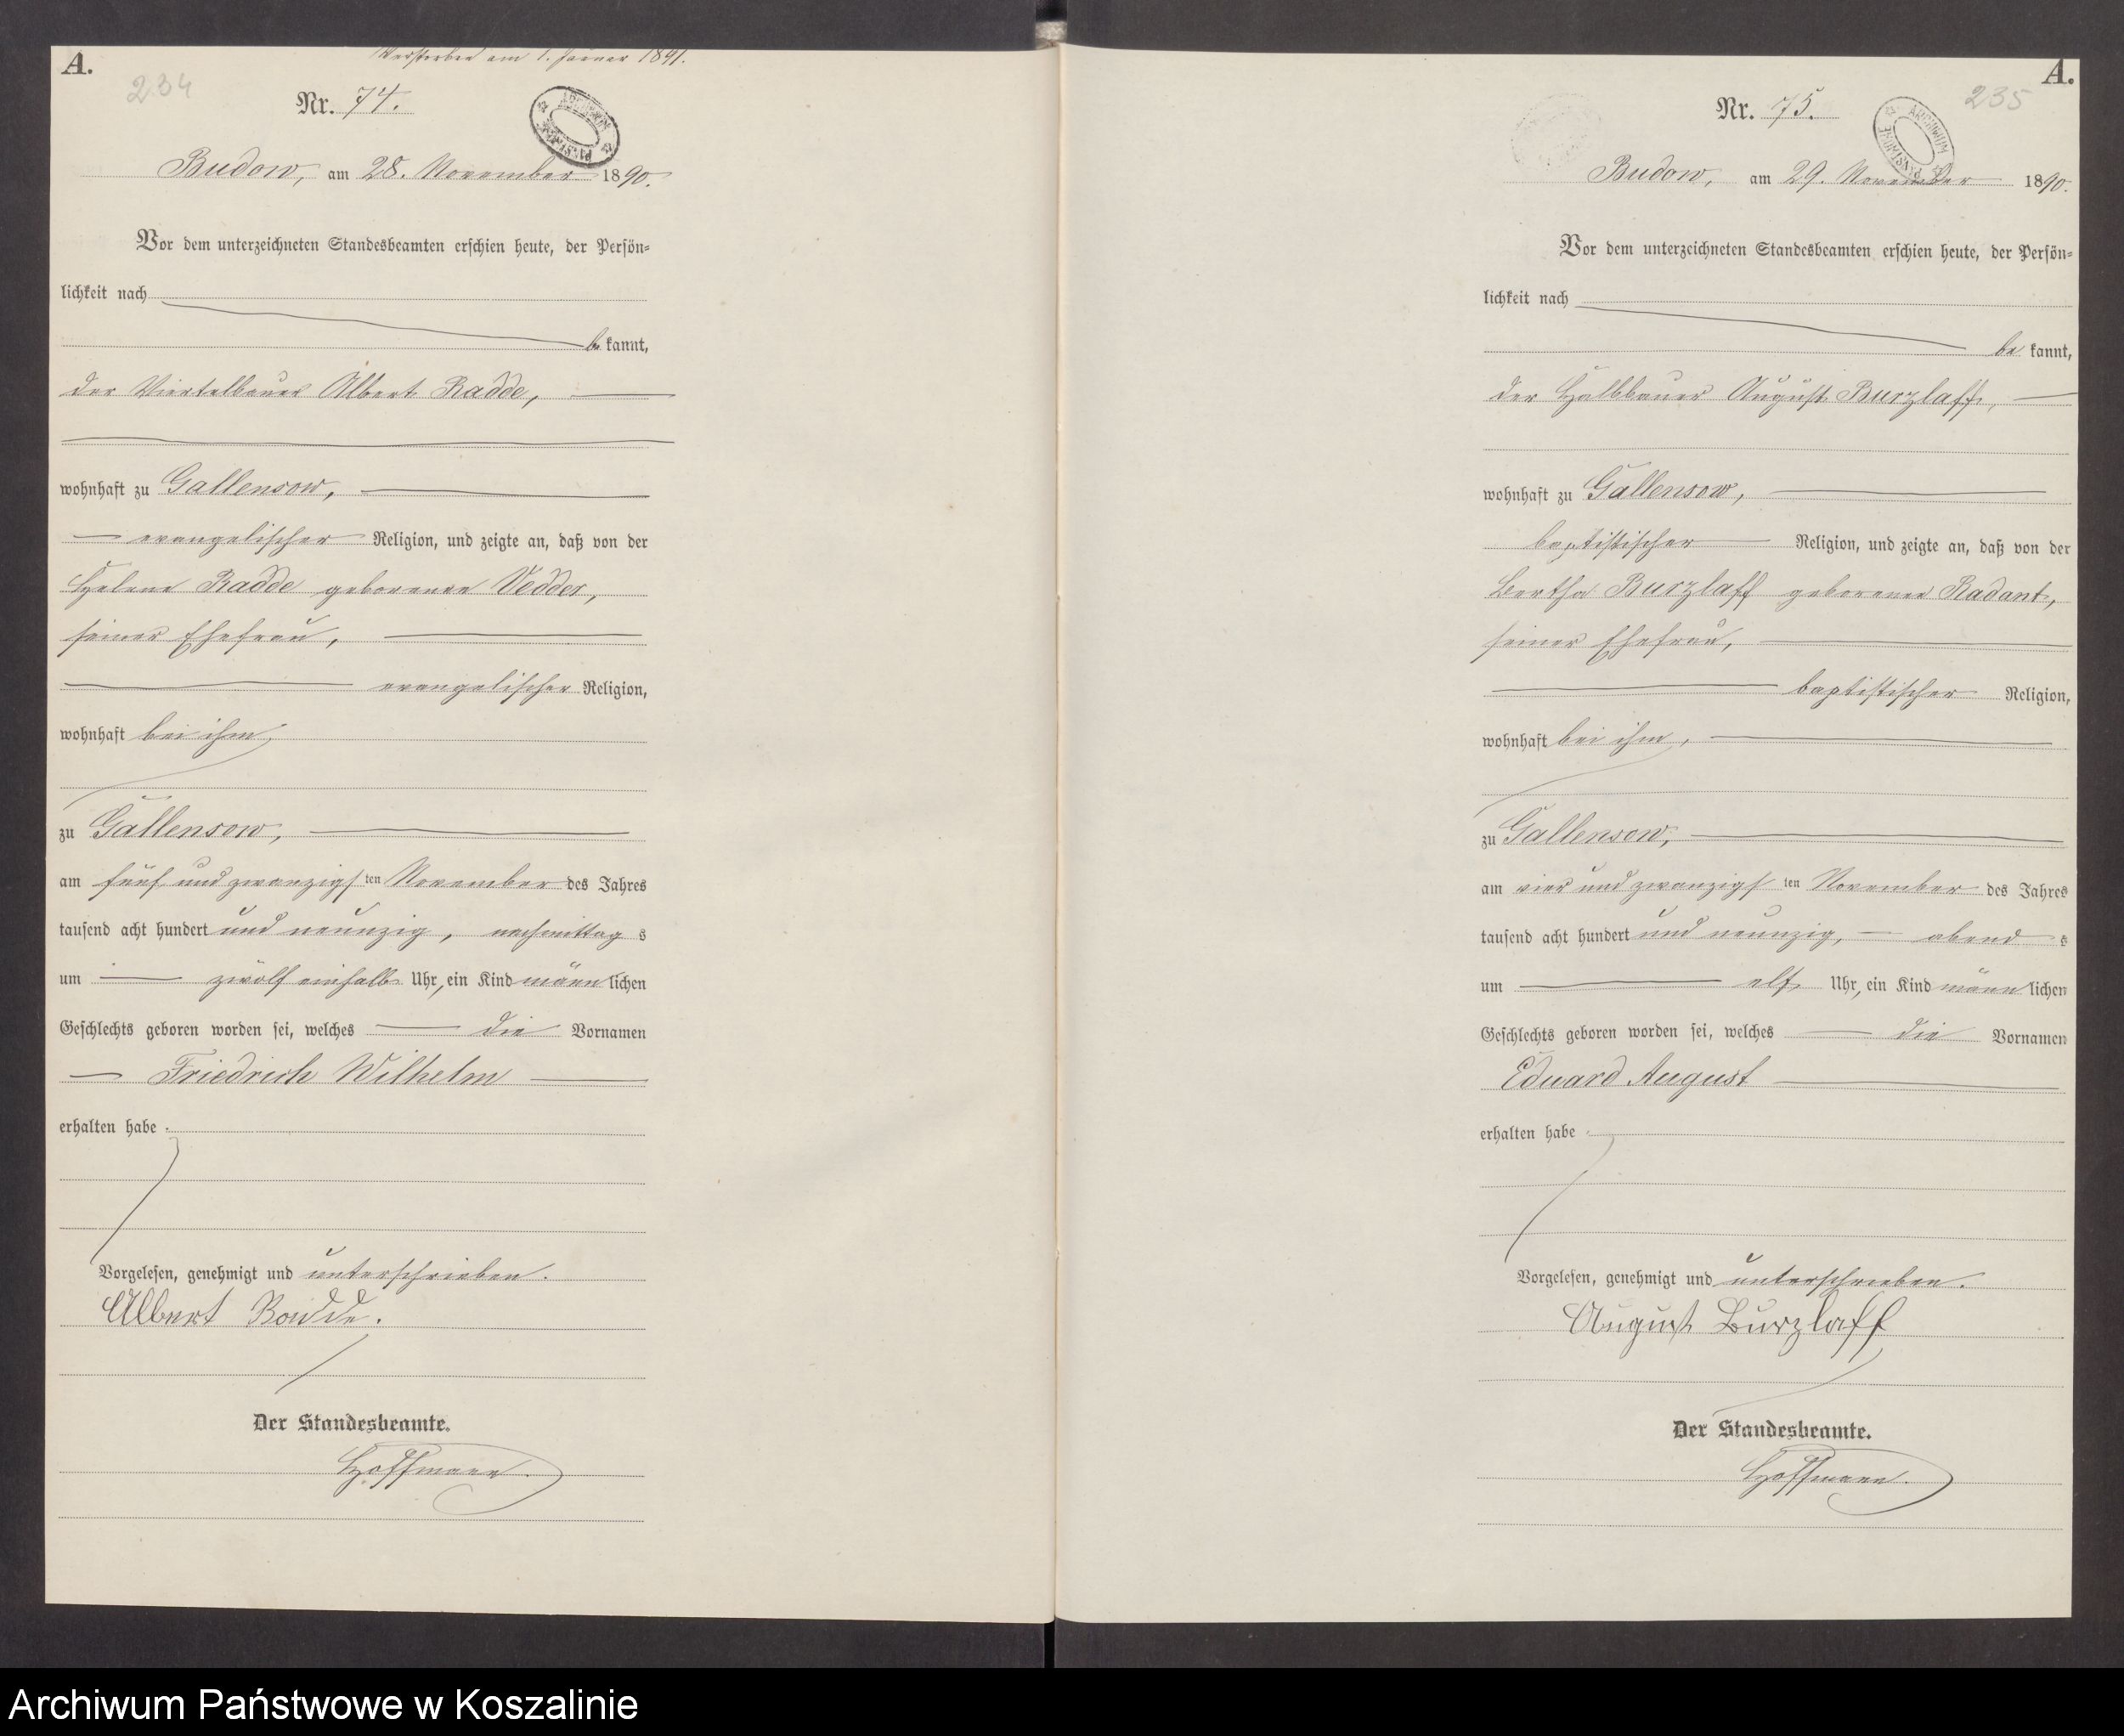 A.
Verstorben am 1. Januar 1891.
234
Nr. 74.
Budow, am 28. November 1890.
Vor dem unterzeichneten Standesbeamten erschien heute, der Persön-
lichkeit nach
be kannt,
der Viertelbauer Albert Radde,
wohnhaft zu Gallensow,
evangelischer Religion, und zeigte an, daß von der
Helene Radde geborenen Vedder,
seiner Ehefrau,
evangelischer Religion,
wohnhaft bei ihm,
zu Gallensow,
am fünf und zwanzigs ten November des Jahres
tausend acht hundert und neunzig, nachmittag s
um zwölf einhalb Uhr, ein Kind männ lichen
Geschlechts geboren worden sei, welches die Vornamen
Friedrich Wilhelm
erhalten habe.
Vorgelesen, genehmigt und unterschrieben.
Albert Radde.
Der Standesbeamte.
Hoffmann.
A.
235
Nr. 75.
ARCHIWUM PAŃSTWOWE
Budow, am 29. November 1890.
Vor dem unterzeichneten Standesbeamten erschien heute, der Persön-
lichkeit nach
be kannt,
der Halbbauer August Burzlaff,
wohnhaft zu Gallensow,
baptistischer Religion, und zeigte an, daß von der
Bertha Burzlaff geborenen Radant,
seiner Ehefrau,
baptistischer Religion,
wohnhaft bei ihm,
zu Gallensow,
am vier und zwanzigs ten November des Jahres
tausend acht hundert und neunzig, abend s
um elf Uhr, ein Kind männ lichen
Geschlechts geboren worden sei, welches die Vornamen
Eduard August
erhalten habe.
Vorgelesen, genehmigt und unterschrieben.
August Burzlaff
Der Standesbeamte.
Hoffmann.
Archiwum Państwowe w Koszalinie